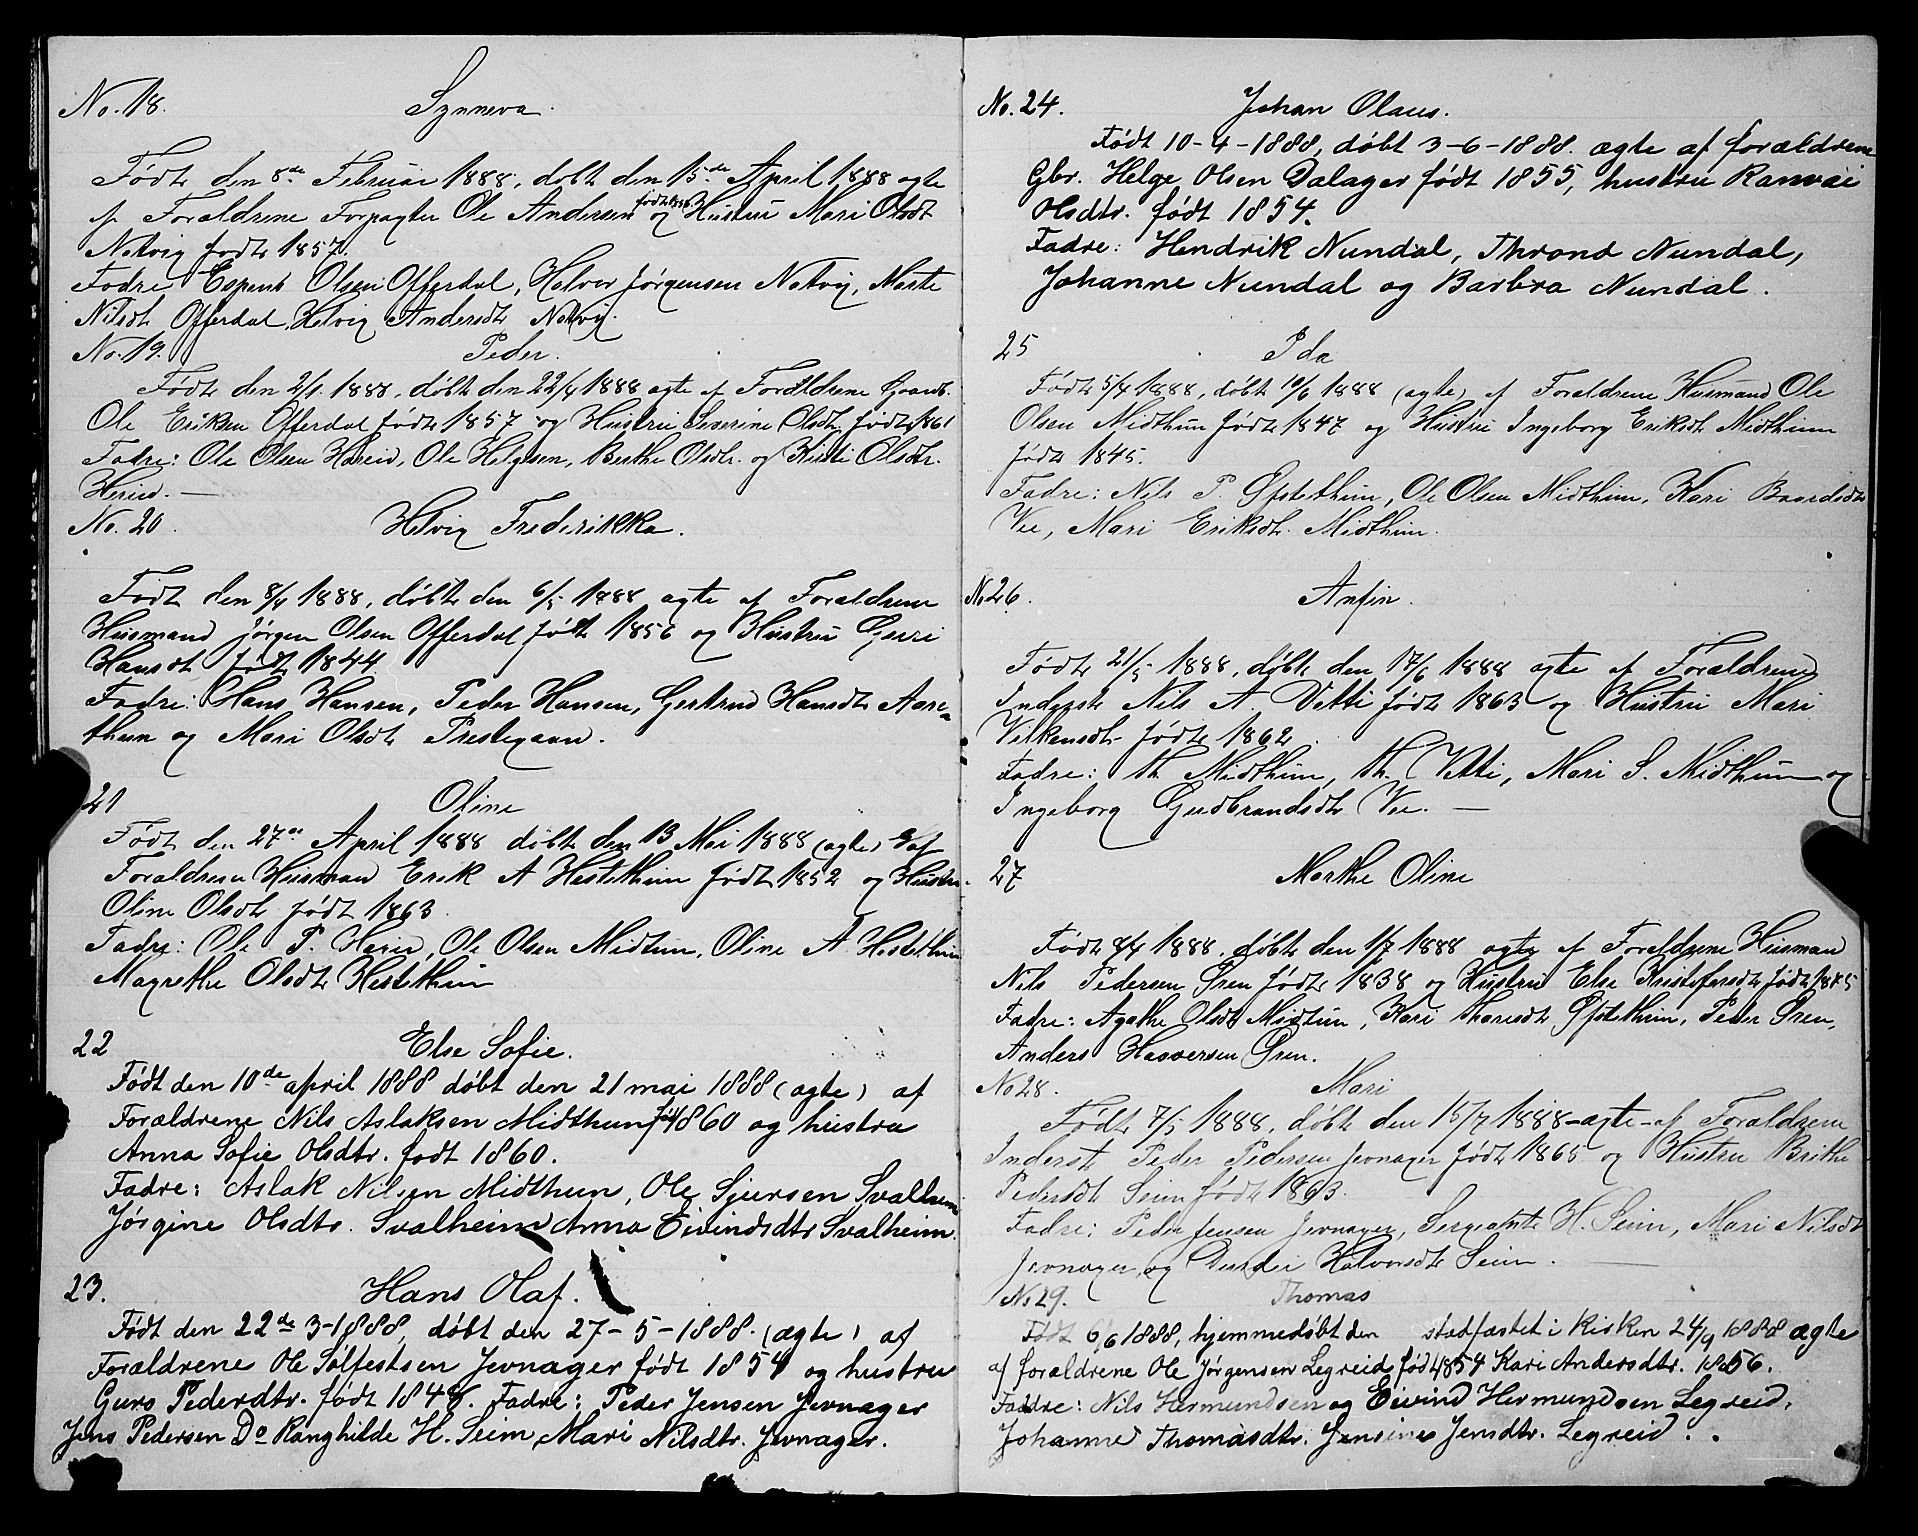 No. 18. Synneva.
Født den 8de Februar 1888, døbt den 15de April 1888 ægte
af Forældrene Forpagter Ole Andersen født og Hustru Mari Olsdt
Natvig født 1857.
Fadre Espen Olsen Offerdal, Halvor Jørgensen Natvig, Marte
Nilsdt Offerdal, Helvig Andersdt Natvig.
No. 19. Peder.
Født den 2/1 1888, døbt den 22/4 1888 ægte af Forældrene Gaardb.
Ole Eriksen Offerdal født 1857 og Hustru Severine Olsdt. født 1861
Fadre: Ole Olsen Hæreid, Ole Helgesen, Berthe Olsdtr. og Kirsti Olsdtr.
Hæreid. —
No. 20. Helvig Frederikka.
Født den 8/4 1888, døbt den 6/5 1888 ægte af Forældrene
Husmand Jørgen Olsen Offerdal født 1856 og Hustru Guri
Hansdt født 1844
Fadre: Hans Hansen, Peder Hansen, Gertrud Hansdt Aare-
thun og Mari Olsdt Prestegaard.
21 Oline
Født den 27de April 1888 døbt den 13 Mai 1888 (ægte) af
Forældrene Husmand Erik A Hestethun født 1852 og Hustru
Oline Olsdt født 1863.
Fadre: Ole P. Hæreid, Ole Olsen Midtun, Oline A. Hestethun
Magrethe Olsdt Hestethun
22 Else Sofie.
Født den 10de april 1888 døbt den 21 mai 1888 (ægte) af
Forældrene Nils Aslaksen Midthun født 1860 og hustru
Anna Sofie Olsdtr. født 1860.
Fadre: Aslak Nilsen Midthun, Ole Sjursen Svalheim
Jørgine Olsdtr. Svalheim Anna Eivindsdtr Svalheim.
23. Hans Olaf.
Født den 22de 3-1888, døbt den 27-5-1888. (ægte) af
Forældrene Ole Sølfestsen Jevnager født 1854 og hustru
Guro Pederdtr. født 1848. Fadre: Peder Jensen Jevnager
Jens Pedersen Do Ranghilde H. Seim, Mari Nilsdtr. Jevnager.
No. 24. Johan Olaus.
Født 10-4-1888, døbt 3-6-1888. ægte af forældrene
Gbr. Helge Olsen Dalager født 1855, hustru Ranvei
Olsdtr. født 1854.
Fadre: Hendrik Nundal, Thrond Nundal,
Johanne Nundal og Barbra Nundal.
25 Ida
Født 5/4 1888, døbt 10/6 1888 (ægte) af Forældrene Husmand Ole
Olsen Midthun født 1847 og Hustru Ingeborg Eriksdt Midthun
født 1845.
Fadre: Nils P. Øfstethun, Ole Olsen Midthun, Kari Baardsdt
Vee, Mari Eriksdt. Midthun.
No 26. Anfin.
Født 21/5 1888, døbt den 17/6 1888 ægte af Forældrene
Inderst Nils A. Vetti født 1863 og Hustru Mari
Vilkensdt født 1862.
Fadre: Th. Midthun, Th. Vetti, Mari S. Midthun og
Ingeborg Gudbrandsdt Vee. —
27 Marthe Oline
Født 8/4 1888, døbt den 1/7 1888 ægte af Forældrene Husmand
Nils Pedersen Øren født 1838 og Hustru Else Kristofersdt født
Fadre: Agathe Olsdt Midtun, Kari Øfstethun, Peder Øren,
Anders Haaversen Øren.
No 28. Mari
Født 7/5 1888, døbt den 15/7 1888 - ægte - af Forældrene
Inderst Peder Pedersen Jevnager født 1865 og Hustru Brithe
Pedersdt Seim født 1863.
Fadre: Peder Jensen Jevnager, Sergeant H. Seim, Mari Nilsdt
Jevnager og Halvorsdt Seim. —
No 29. Thomas
Født 6/6 1888, hjemmedøbt den stadfæstet i kirken 24/9 1888 ægte
af forældrene Ole Jørgensen Legreid født 1854 Kari Andersdtr. 1856.
Faddre: Nils Hermundsen og Eivind Hermundsen Legreid,
Johanne Thomasdtr. Jensine Jensdtr. Legreid.